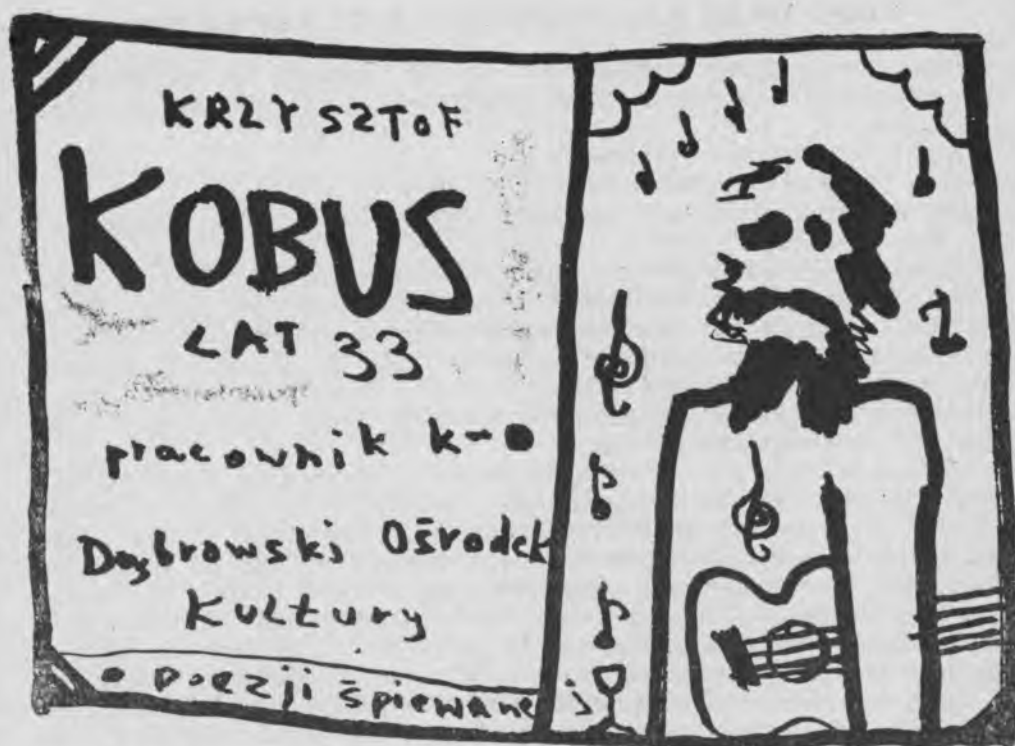 KRZYSZTOF
KOBUS
LAT 33
pracownik k-o
Dąbrowski Ośrodek
Kultury
o poezji śpiewanej